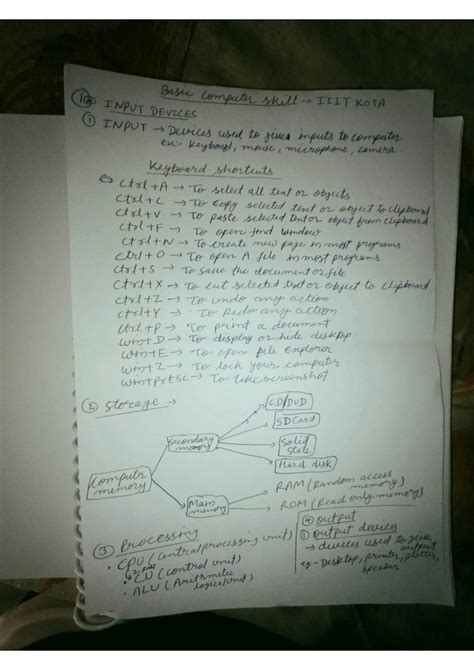 Basic Computer skill → IIIT KOTA
INPUT DEVICES
① INPUT → Devices used to give inputs to computer
ex:- Keyboard, mouse, microphone, camera.
Keyboard shortcuts
Ctrl+A → To select all text or objects
Ctrl+C → To copy selected text or object to clipboard
Ctrl+V → To paste selected text or object from clipboard
Ctrl+F → To open find window
Ctrl+N → To create new page in most programs
Ctrl+O → To open A file in most programs
Ctrl+S → To save the document or file
Ctrl+X → To cut selected text or object to clipboard
Ctrl+Z → To undo any action
Ctrl+Y → To Redo any action
Ctrl+P → To print a document
win+D → To display or hide desktop
win+E → To open file explorer
win+Z → To lock your computer
win+PrtSc → To take screenshot
② Storage →
CD/DVD
SD Card
Secondary memory
Solid State
Hard disk
Computer memory
Main memory
RAM (Random access memory)
ROM (Read only memory)
③ Processing
• CPU (Central processing unit)
• CU (control unit)
• ALU (Arithmetic logical unit)
④ Output
① Output devices
→ devices used to give output
eg - Desktop, printer, plotter, speaker